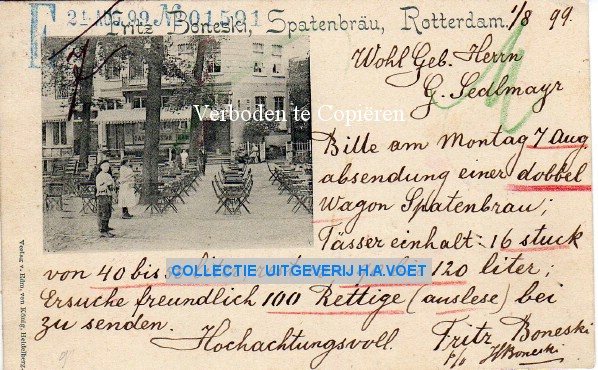 F 2 1. AUG. 99 No 01591
Fritz Boneski, Spatenbräu, Rotterdam. 1/8 99.
Wohl Geb. Herrn
G. Sedlmayr
Verboden te Copiëren
Bitte am Montag 7 Aug
absendung einer dobbel
Wagon Spatenbrau;
Fässer einhalt: 16 stuck
von 40 bis 120 liter;
COLLECTIE UITGEVERIJ H.A.VOET
Ersuche freundlich 100 Rettige (auslese) bei
zu senden.
Hochachtungsvoll. Fritz Boneski
p/o HBoneski
Verlag v. Edm. von König, Heidelberg.